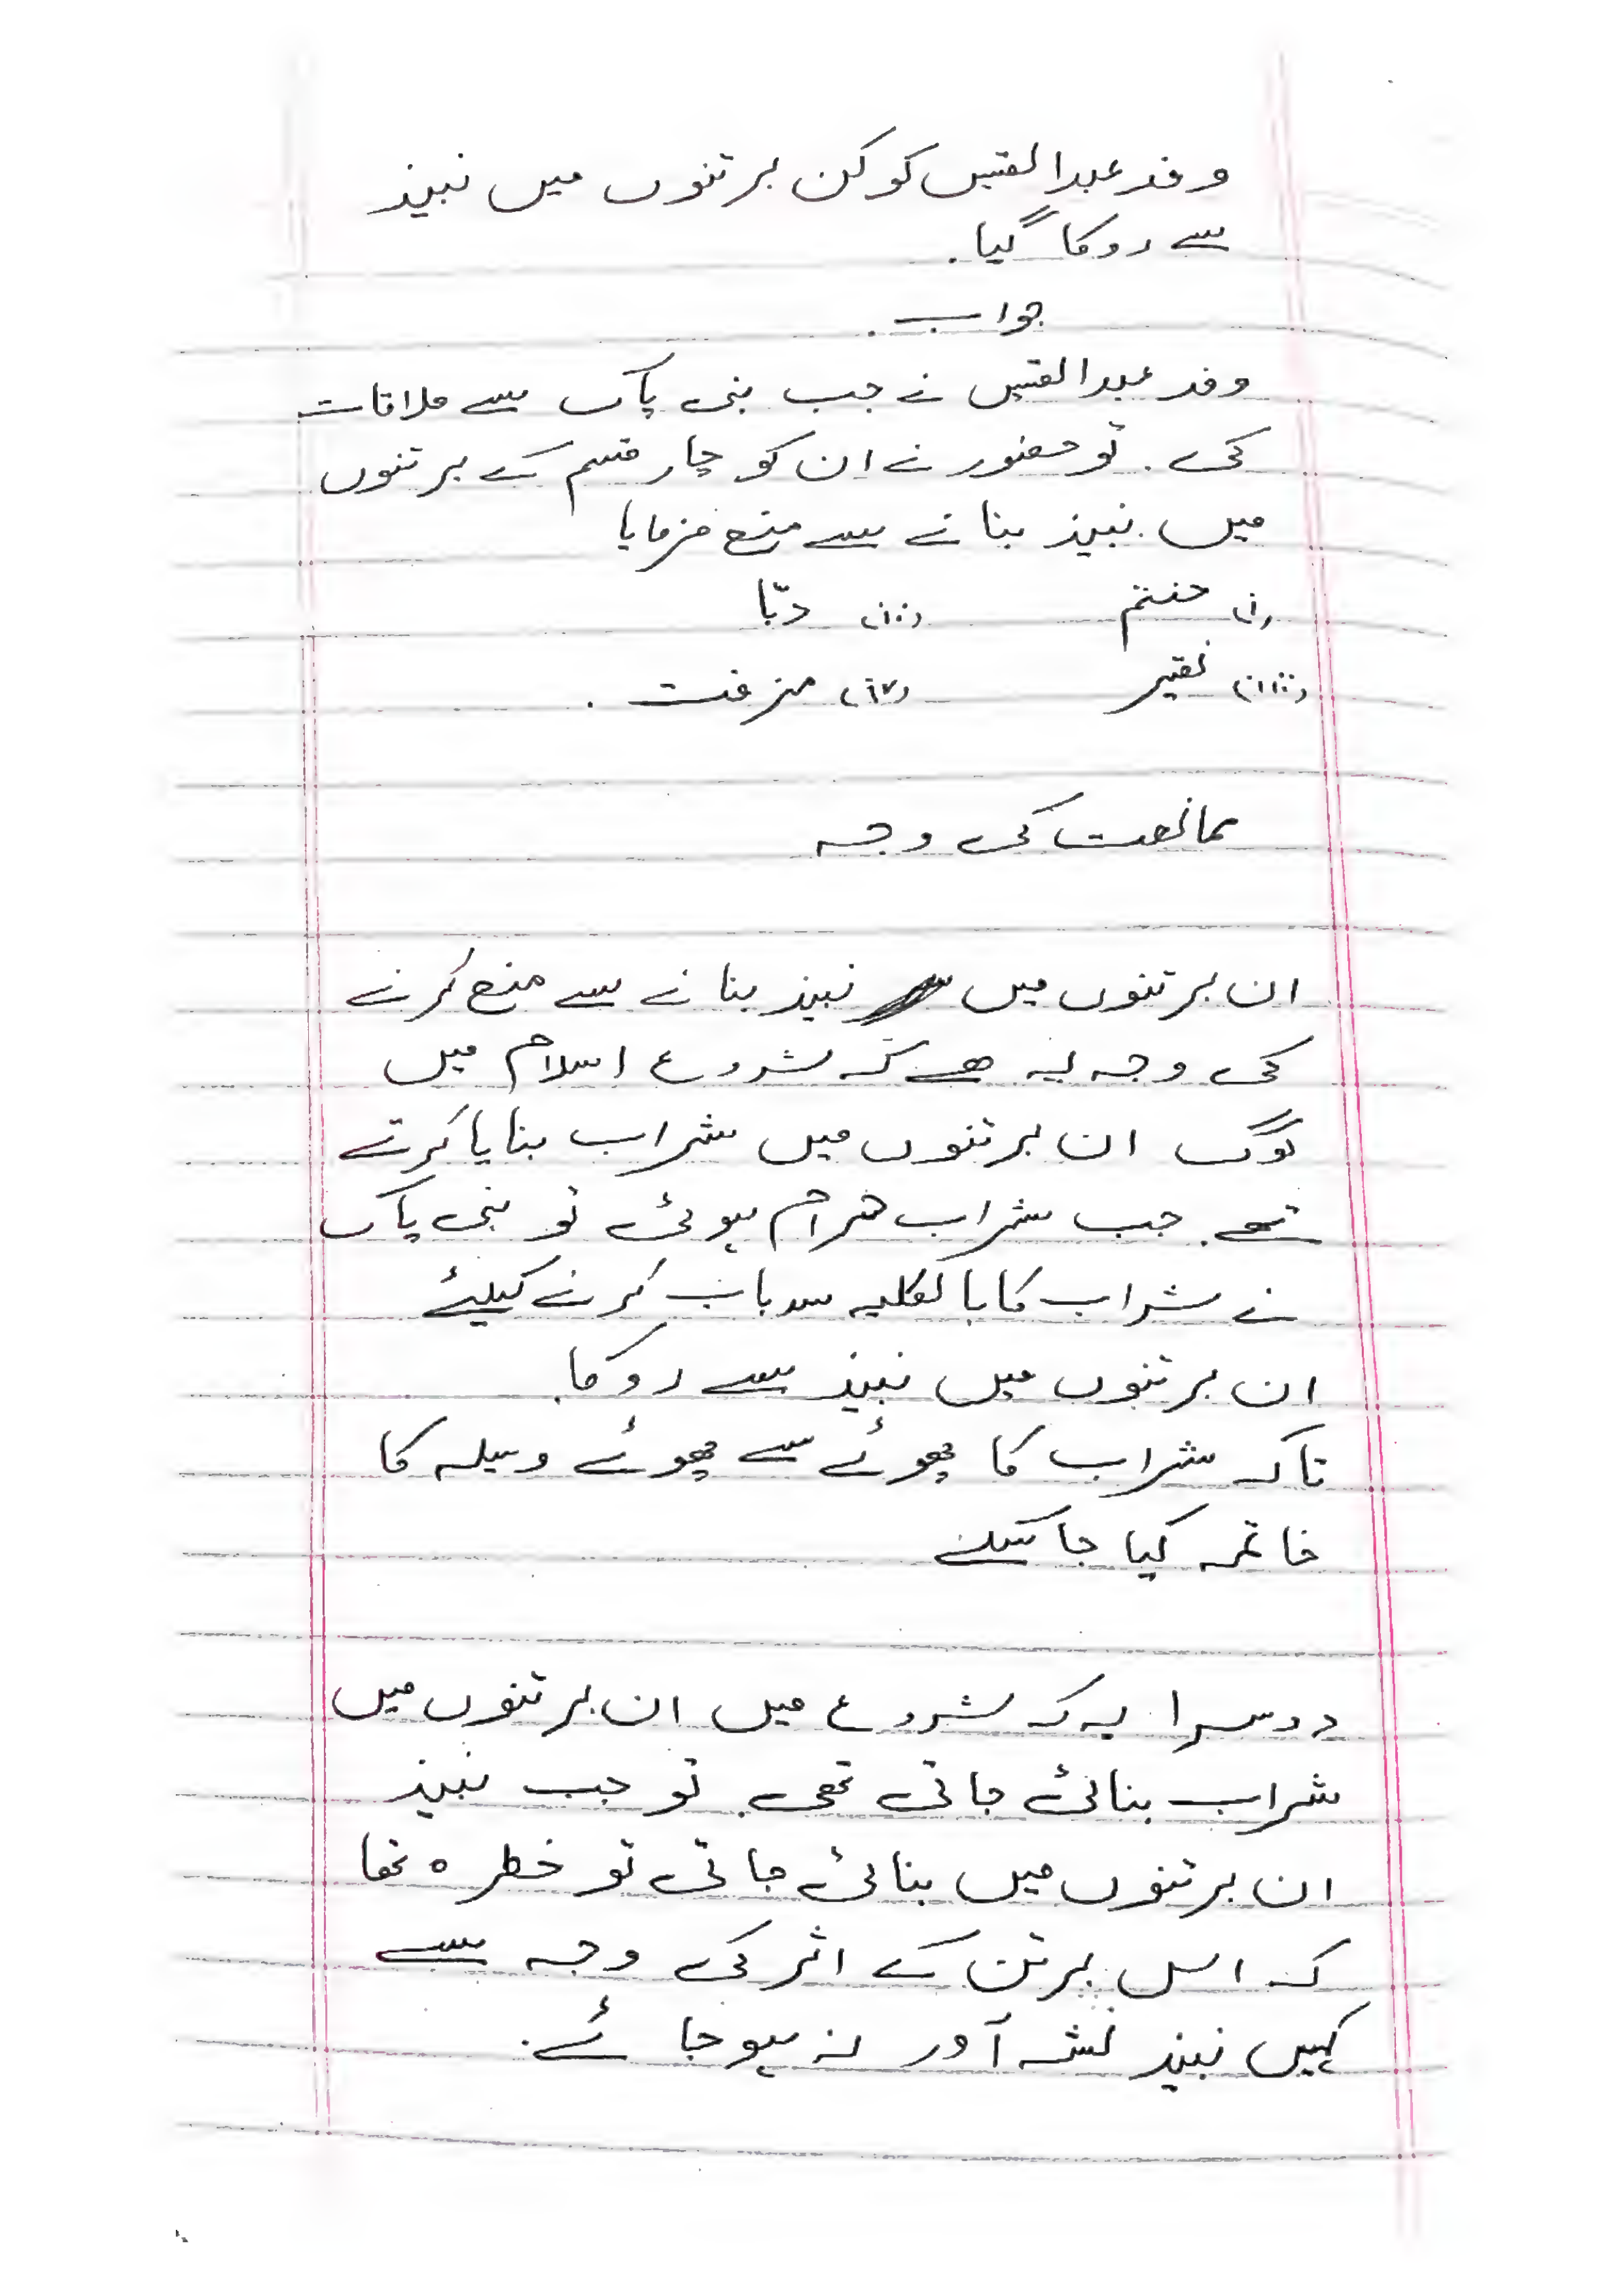 وفد عبدالقیس کو کن برتنوں میں نبیذ
سے روکا گیا.
جواب.
وفد عبدالقیس نے جب نبی پاک سے ملاقات
کی. تو حضور نے ان کو چار قسم کے برتنوں
میں. نبیذ بنانے سے منع فرمایا
(i) حنتم (ii) دبّا
(iii) نقیر (iv) مزفت.
ممانعت کی وجہ
ان برتنوں میں نبیذ بنانے سے منع کرنے
کی وجہ یہ ھے کہ شروع اسلام میں
لوگ ان برتنوں میں شراب بنایا کرتے
تھے. جب شراب حرام ہوئی تو نبی پاک
نے شراب کا بالکلیہ سدباب کرنے کیلئے
ان برتنوں میں نبیذ سے روکا.
تاکہ شراب کا چھوٹے سے چھوٹے وسیلہ کا
خاتمہ کیا جا سکے
دوسرا یہ کہ شروع میں ان برتنوں میں
شراب بنائی جاتی تھی. تو جب نبیذ
ان برتنوں میں بنائی جاتی تو خطرہ تھا
کہ اس برتن کے اثر کی وجہ سے
کہیں نبیذ نشہ آور نہ ہو جائے.